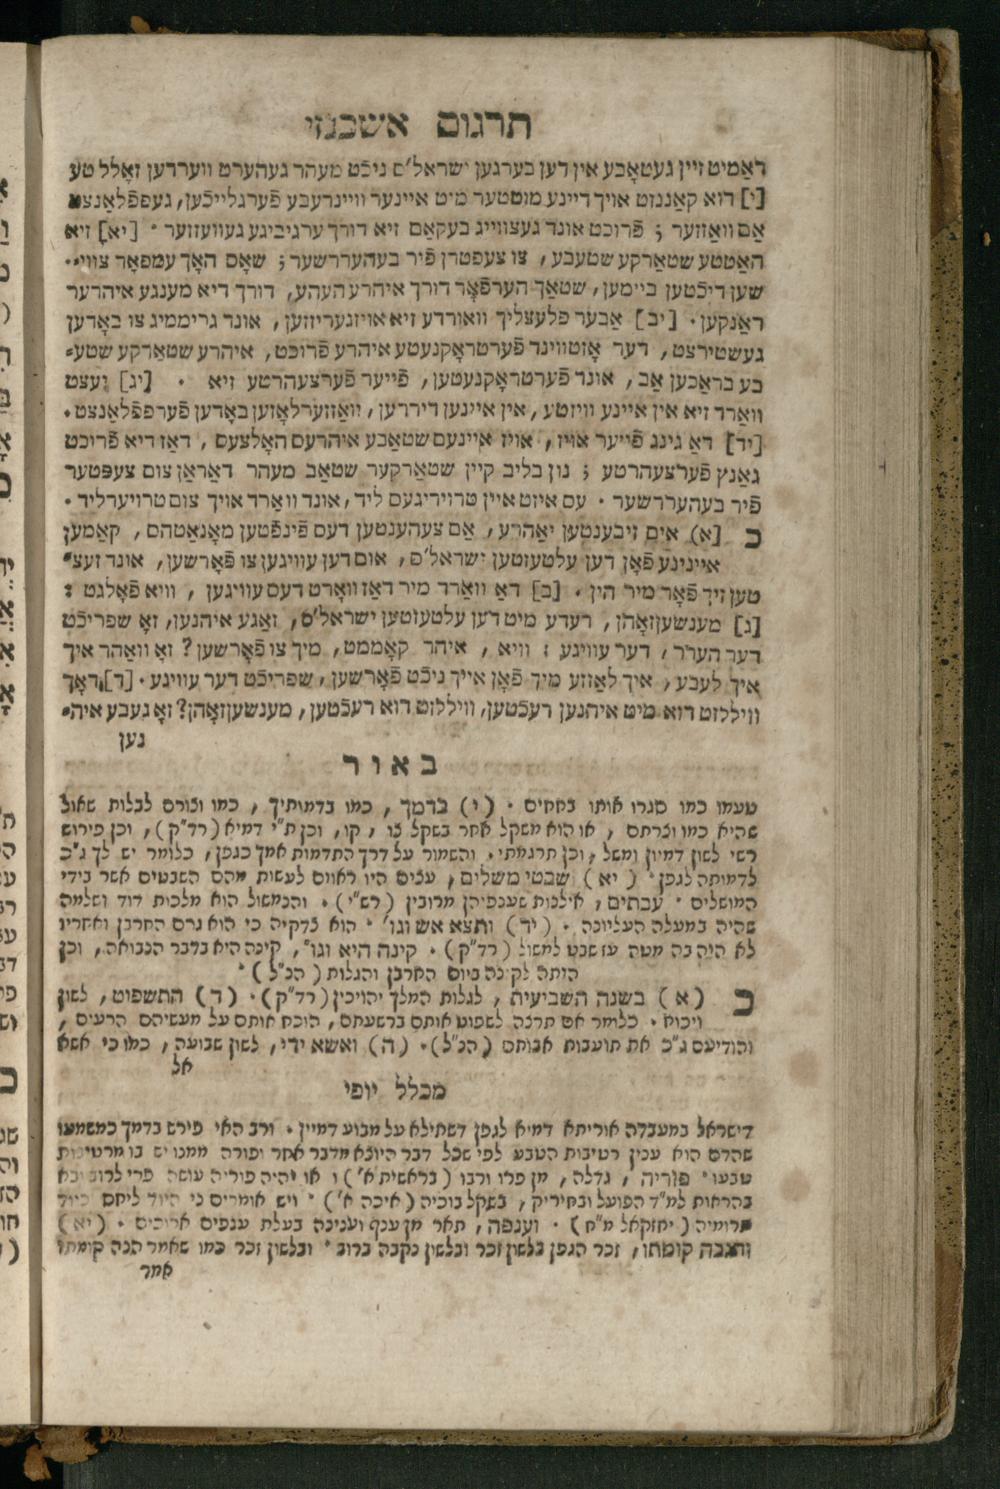 תרגום אשכנזי
דאַמיט זיין געטאָבע אין דען בערגען ישראל'ס ניכֿט מעהר געהערט ווערדען זאָללטע
[י] דוא קאַננזט אויך דיינע מוטטער מיט איינער וויינרעבע פֿערגלייכֿען, געפפֿלאַנצט
אַם וואַזזער ; פֿרוכט אונד געצווייג בעקאַם זיא דורך ערגיביגע געוועזזער · [יא] זיא
האַטטע שטאַרקע שטעבע, צו צעפטרן פֿיר בעהעררשער; שאָס האָך עמפאָר צווי־
שען דיכֿטען ביימען, שטאַך הערפֿאָר דורך איהרע העהע, דורך דיא מענגע איהרער
ראַנקען · [יב] אַבער פלעצליך וואורדע זיא אויזגעריזזען, אונד גריממיג צו באָדען
געשטירצט, דער אָזטווינד פֿערטראָקנעטע איהרע פֿרוכט, איהרע שטאַרקע שטע=
בע בראַכען אַב, אונד פֿערטראָקנעטען, פֿייער פֿערצעהרטע זיא · [יג] יעצט
וואַרד זיא אין איינע וויזטע, אין איינען דיררען, וואַזזערלאָזען באָדען פֿערפפֿלאַנצט.
[יד] דאַ גינג פֿייער אויז, אויז איינעם שטאַבע איהרעס האָלצעס, דאַז דיא פֿרוכט
גאַנץ פֿערצעהרטע ; נון בליב קיין שטאַרקער שטאַב מעהר דאַראַן צום צעפטער
פֿיר בעהעררשער · עס איזט איין טרויריגעס ליד, אונד וואַרד אויך צום טרויערליד .
כ [א) אים זיבענטען יאַהרע, אַם צעהענטען דעס פֿינפֿטען מאָנאַטהס, קאַמען
איינינע פֿאָן דען עלטעזטען ישראל'ס, אום דען עוויגען צו פֿאָרשען, אונד זעצ=
טען זיך פֿאָר מיר הין · [ב] דאַ וואַרד מיר דאַז וואָרט דעס עוויגען, וויא פֿאָלגט :
[ג] מענשענזאָהן, רעדע מיט דען עלטעזטען ישראל'ס, זאַגע איהנען, זאָ שפריכֿט
דער העררר, דער עוויגע : וויא, איהר קאָממט, מיך צו פֿאָרשען? זאָ וואַהר איך
איך לעבע, איך לאַזזע מיך פֿאָן אייך ניכֿט פֿאָרשען, שפריכֿט דער עוויגע · [ד] דאָך
ווילללזט דוא מיט איהנען רעכֿטען, ווילללזט דוא רעכֿטען, מענשענזאָהן? זאָ געבע איה=
נען
באור
טעמו כמו סגרו אותו בחחים · (י) בדמך, כמו בדמותיך, כמו וצורם לבלות שאול
שהיא כמו וצרתם, או הוא משקל אחר בשקל צו, קו, וכן ת"י דמיא (רד"ק), וכן פירוש
רש"י לשון דמיון ומשל, וכן תרגמתי. והשמור על דרך התדמות אמך כגפן, כלומר יש לך ג"כ
לדמותה לגפן · (יא) שבטי משלים, עצים היו ראוים לעשות מהם השבטים אשר בידי
המושלים · עבתים, אילנות שענפיהן מרובין (רש"י) . והנמשול הוא מלכות דוד ושלמה
שהיה במעלה העליונה · (יד) ותצא אש וגו' · הוא צדקיה כי הוא גרם החרבן ואחריו
לא היה בה מטה עז שבט למשול (רד"ק) . קינה היא וגו', קינה היא בדבר הנבואה, וכן
היתה לקינה ביום החרבן והגלות (הנ"ל) ·
כ (א) בשנה השביעית, לגלות המלך יהויכין (רד"ק) · (ד) התשפוט, לשון
ויכוח . כלומר אם תרצה לשפוט אותם ברשעתם, הוכח אותם על מעשיהם הרעים,
והודיעם ג"כ את תועבות אבותם (הנ"ל) . (ה) ואשא ידי, לשון שבועה, כמו כי אשא
אל
מכלל יופי
דישראל במעבדה אוריתא דמיא לגפן דשתילא על מבוע דמיין . ורב האי פירש בדמך כמשמעו
שהדם הוא ענין רטיבות הטבע לפי שכל דבר היוצא מדבר אחר ופורה ממנו יש בו מרטיבות
טבעו · פוריה, גדלה, מן פרו ורבו (בראשית א') או יהיה פוריה עושה פרי לרוב
בהראות למ"ד הפועל ובחיריק, בשקל בוכיה (איכה א') · ויש אומרים כי היוד ליחס כיוד
תרומיה (יחזקאל מ"ח) . וענפה, תאר מן ענף וענינה בעלת ענפים ארוכים . (יא)
ותגבה קומתו, זכר הגפן בלשון זכר ובלשון נקבה ברוב · ובלשון זכר כמו שאמר הנה קומתו
אמר